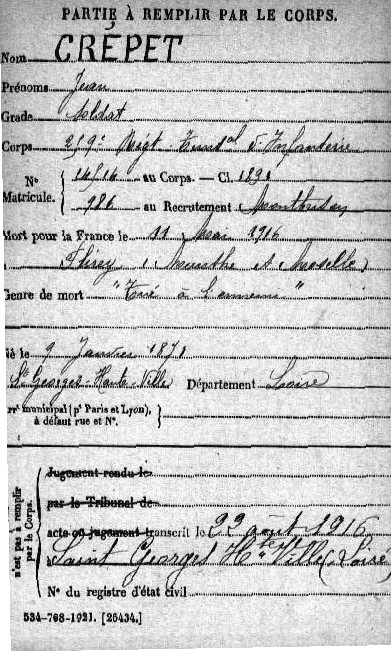 PARTIE À REMPLIR PAR LE CORPS.
Nom CRÉPET
Prénoms Jean
Grade Soldat
Corps Régt d'Infanterie
N° au Corps. — Cl. 1891
Matricule. 986 au Recrutement Montbrison
Mort pour la France le 11 Mai 1916
Flirey (Meurthe et Moselle)
Genre de mort "Tué à l'ennemi"
Né le 9 Janvier 1871
St Georges-Haute-Ville Département Loire
Arrt municipal (pr Paris et Lyon), à défaut rue et N°.
n'est pas à remplir par le Corps.
Jugement rendu le
par le Tribunal de
acte ou jugement transcrit le 22 août 1916
Saint Georges Hte Ville (Loire
N° du registre d'état civil
534-708-1921. [26434.]